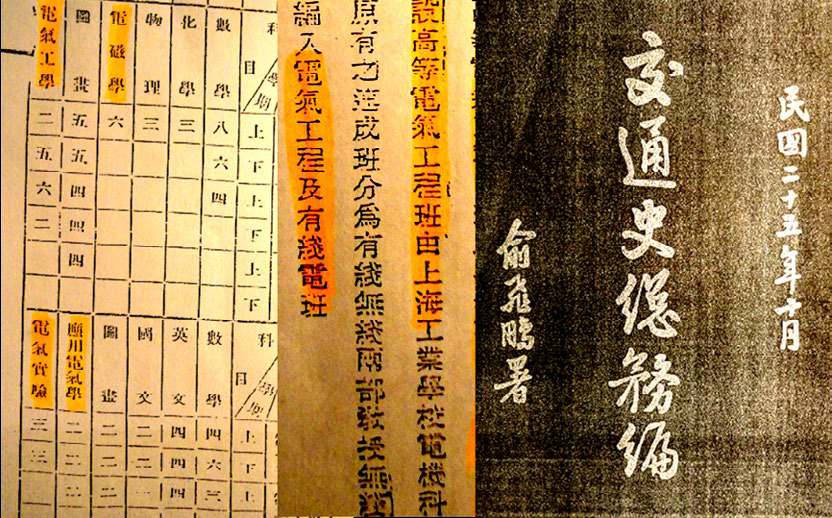 民國二十五年十月
交通史總務編
俞飛鵬署
設高等電氣工程班由上海工業學校電機科
原有之速成班分爲有綫無綫兩部敎授無綫
編入電氣工程及有綫電班
科目 學期 上 下 上 下 上 下
數學 八 六 四
化學 三
物理 三
電磁學 六
圖畫 五 五 四 四 四
電氣工學 二 五 六 二
科目 學期 上 下 上
數學 四 六 三
英文 四 四 四
國文 二 二
圖畫 二 二 二
應用電氣學 二 二 二
電氣實驗 三 三